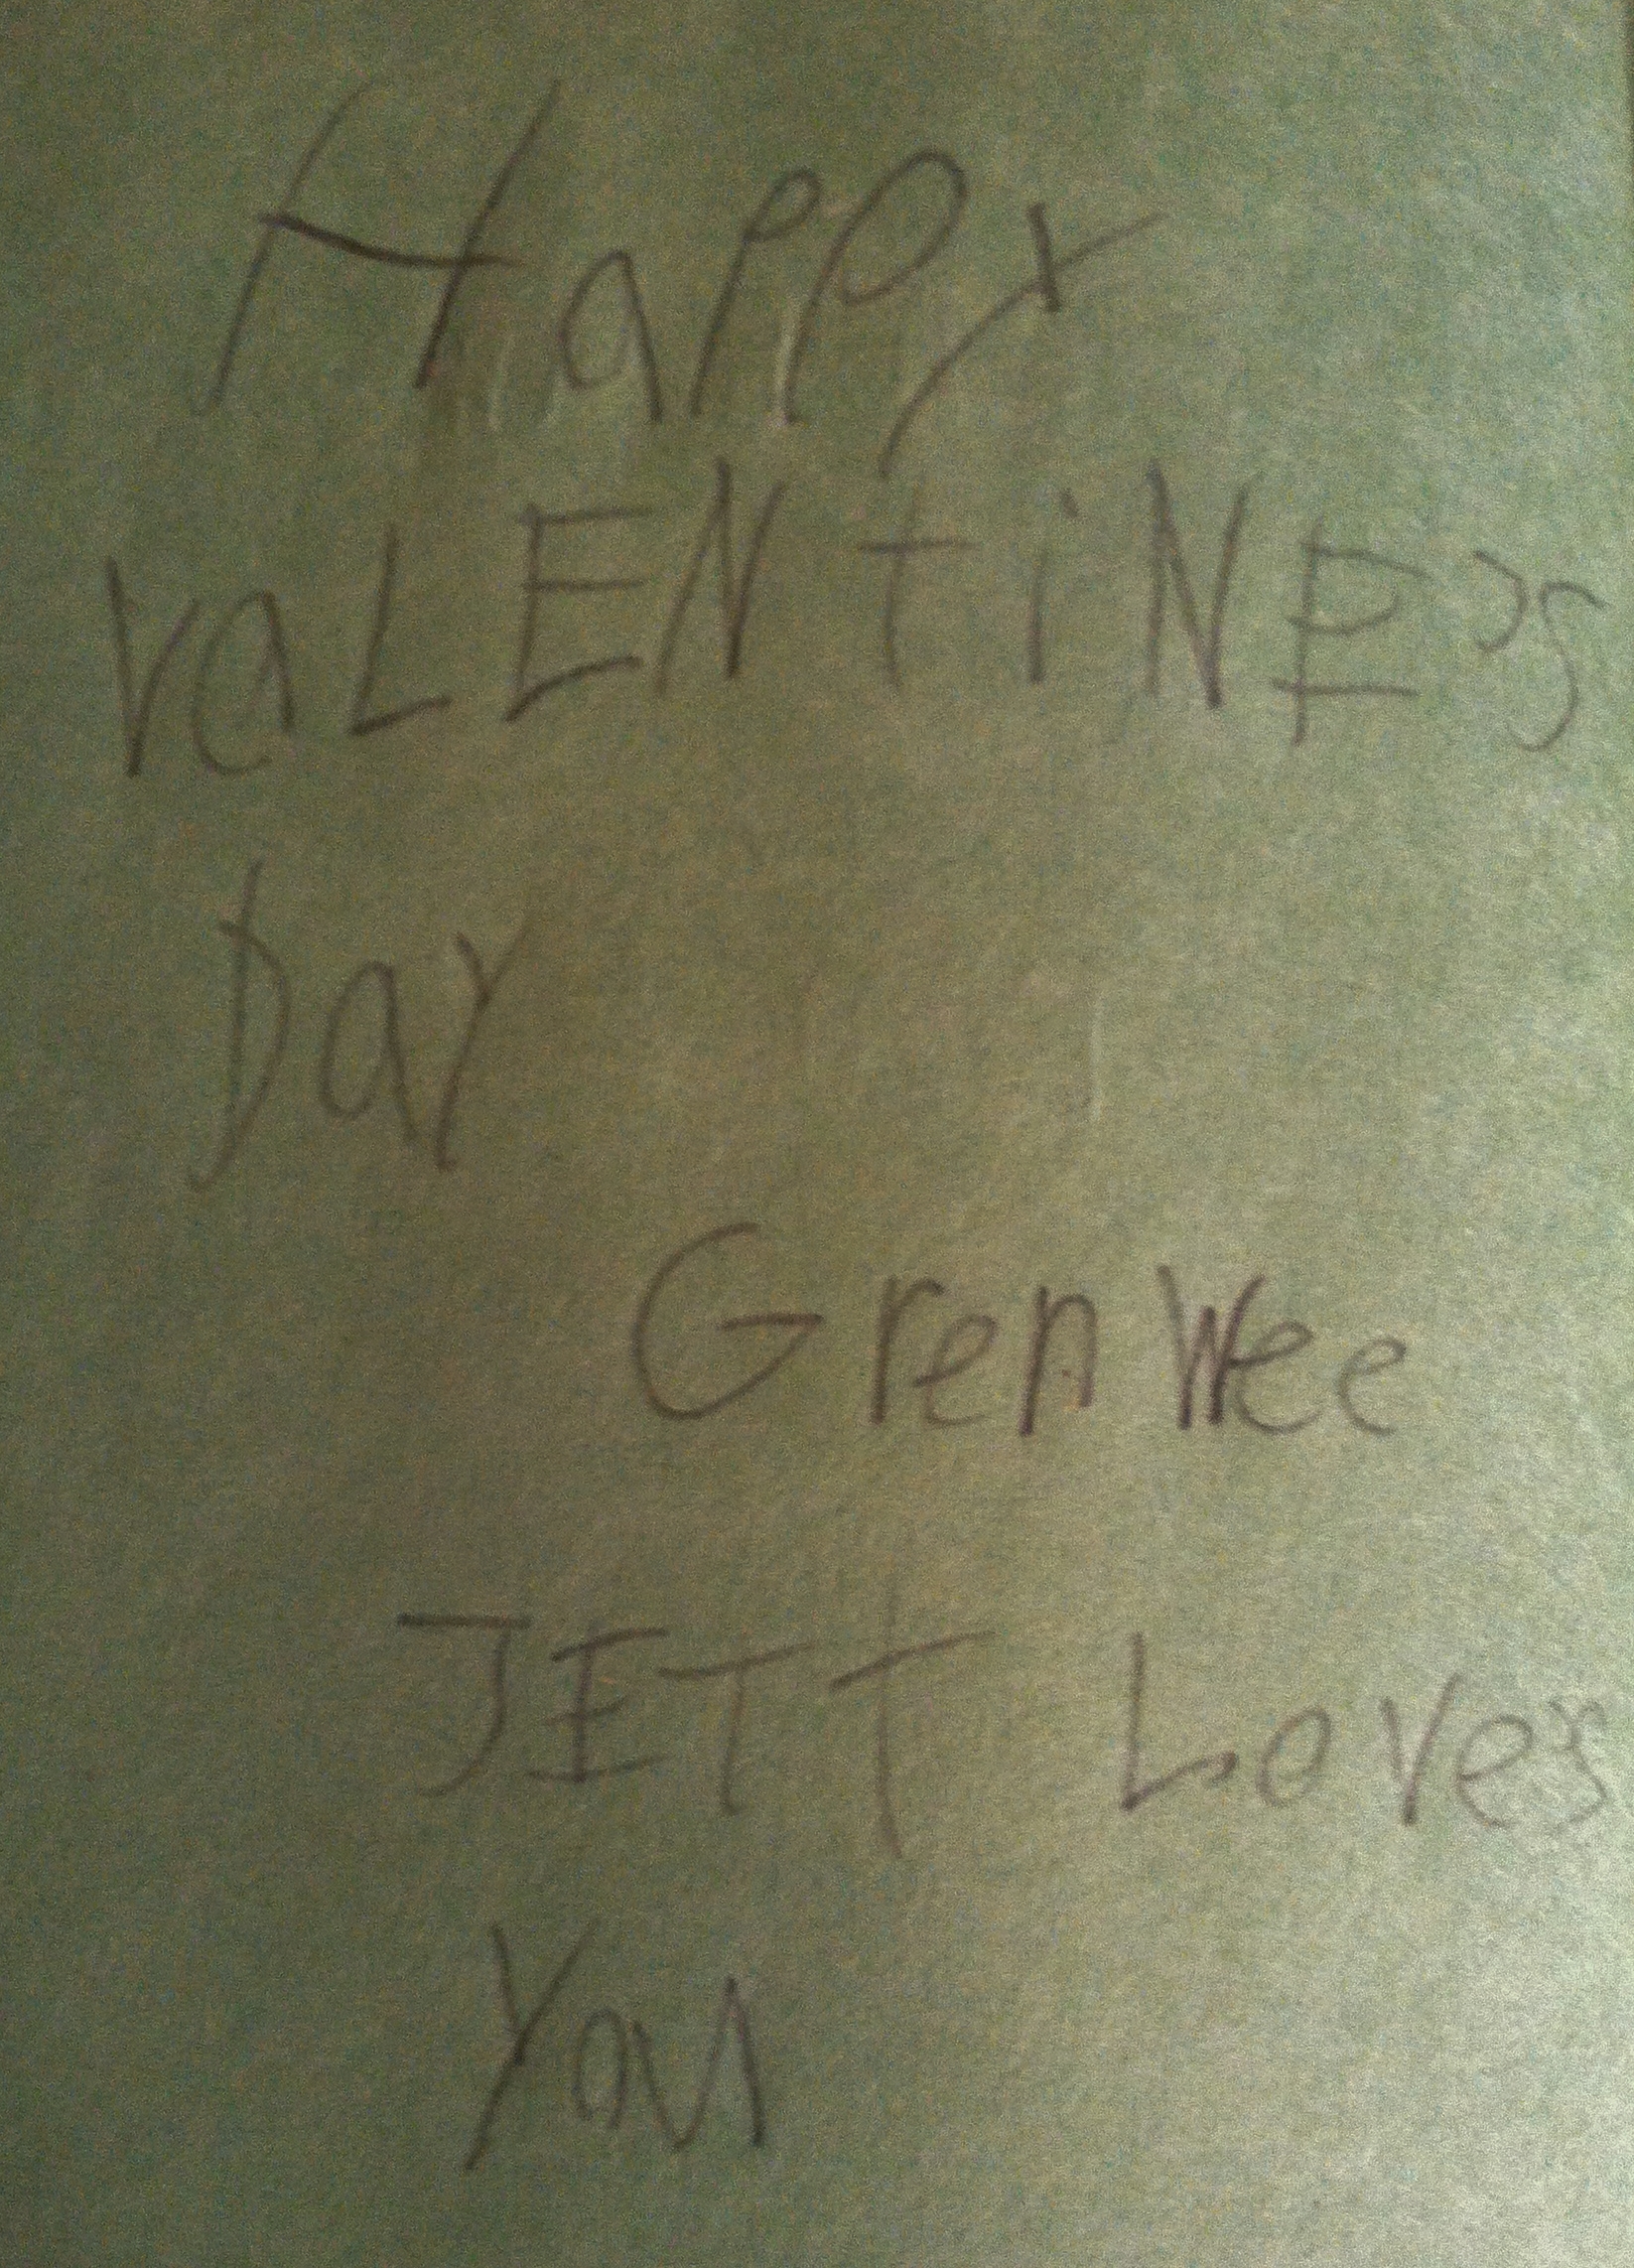 Happy
VaLENtiNE's
Day
Grenwee
JETT Loves
You